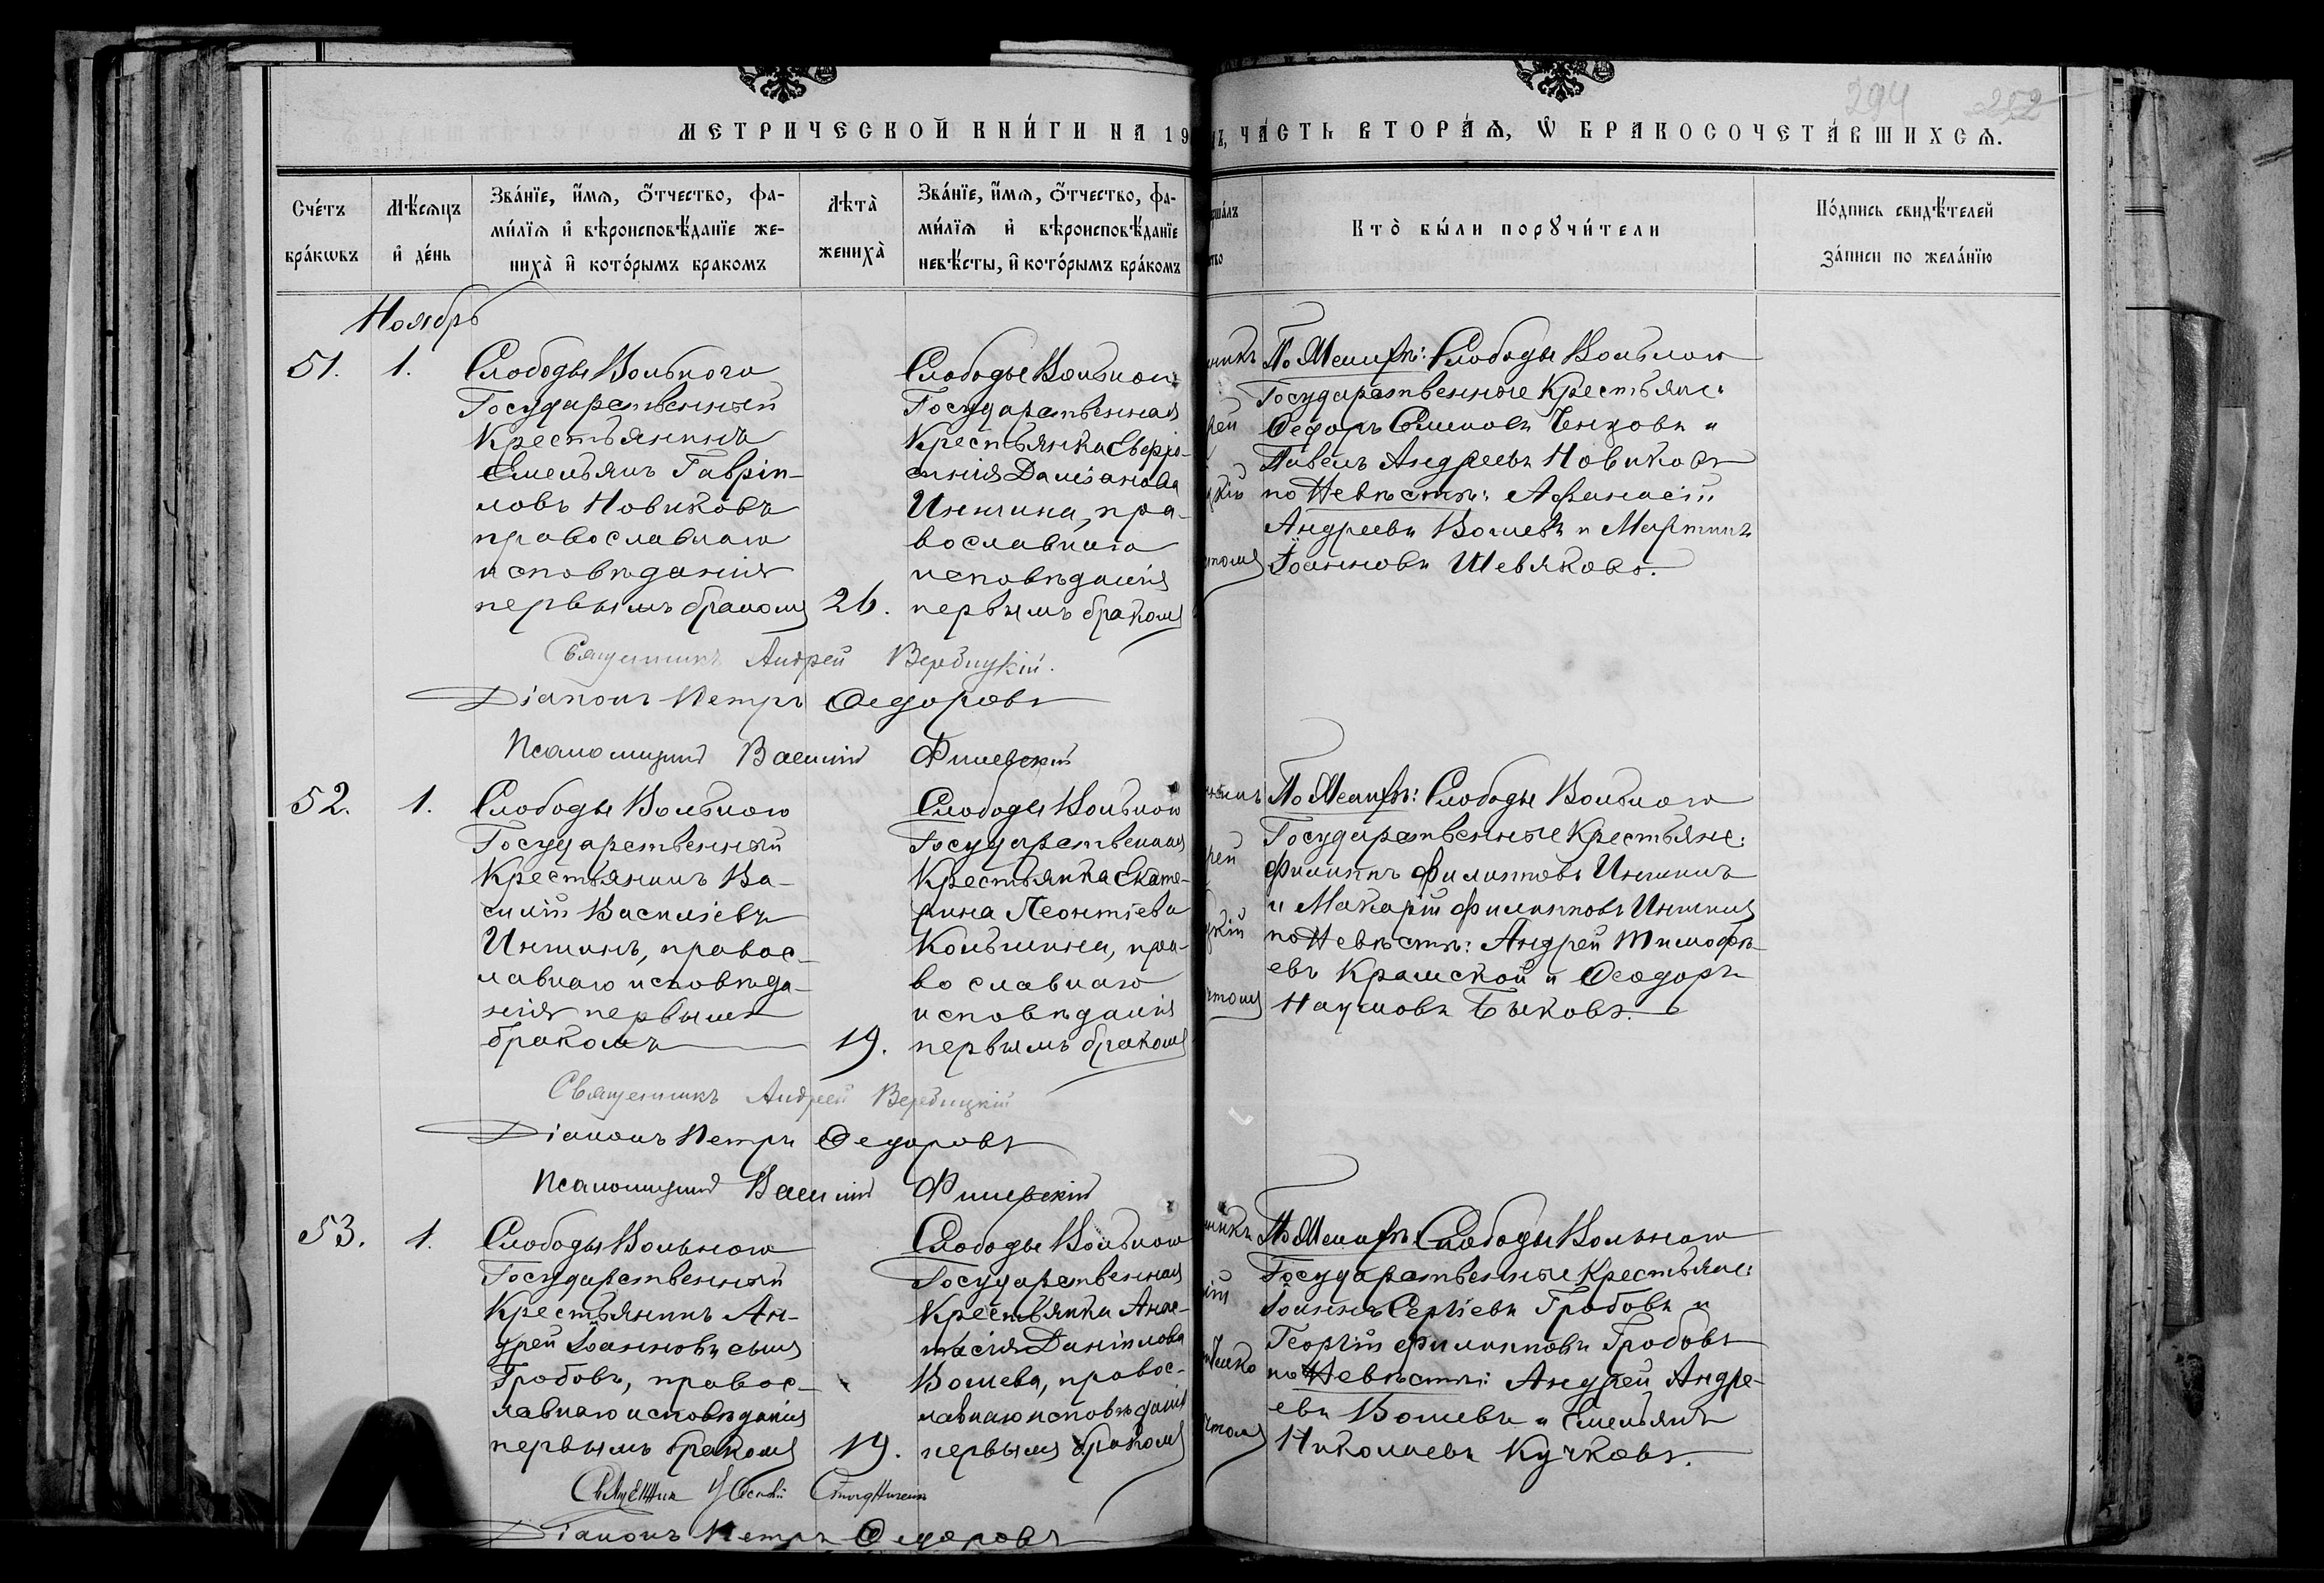 294 252
МЕТРИЧЕСКОЙ КНИ́ГИ НА 19
ЧА́СТЬ ВТОРА́Ѧ, Ѡ҆ БРАКОСОЧЕТА́ВШИХСѦ.
Сче́тъ бра́кѡвъ
Мѣ́сѧцъ и҆ де́нь
Зва́нїе, и҆́мѧ, ѻ҆́тчество, фа-
ми́лїѧ и҆ вѣроисповѣ́данїе же-
ниха̀ и҆ кото́рымъ бракомъ
Лѣта̀ жениха̀
Зва́нїе, и҆́мѧ, ѻ҆́тчество, фа-
ми́лїѧ и҆ вѣроисповѣ́данїе
невѣ́сты, и҆ кото́рымъ бра́комъ
Кто̀ бы́ли порꙋчи́тели
По́дпись свидѣ́телей
за́писи по жела́нїю
Ноябрь
51. 1.
Слободы Вольного
Государственный
Крестьянинъ
Емельянъ Гаврiи-
ловъ Новиковъ
православнаго
исповѣданiя
первымъ бракомъ
26.
Слободы Вольного
Государственная
Крестьянка Евфро-
синiя Дамiанова
Иншина, пра-
вославнаго
исповѣданiя
первымъ бракомъ
По Женихѣ: Слободы Вольного
Государственные Крестьяне:
Ѳедоръ и
Павелъ Андреевъ Новиковъ
по Невѣстѣ: Афанасiй
Андреевъ Вошевъ и Мартинъ
Iоанновъ Шевяковъ.
Священникъ Андрей Вербицкiй.
Дiаконъ Петръ Ѳедоровъ
Псаломщикъ Василiй
52. 1.
Слободы Вольного
Государственный
Крестьянинъ Ва-
силiй Василiевъ
Иншинъ, правос-
лавнаго исповѣда-
нiя первымъ
бракомъ
19.
Слободы Вольного
Государственная
Крестьянка Екате-
рина Леонтiева
Кольчина, пра-
вославнаго
исповѣданiя
первымъ бракомъ
По Женихѣ: Слободы Вольного
Государственные Крестьяне:
Филиппъ Филипповъ Иншинъ
и Макарiй Филипповъ Иншинъ
по Невѣстѣ: Андрей Тимофѣ-
евъ Крамской и Ѳеодоръ
Наумовъ Быковъ.
Священникъ Андрей Вербицкiй
Дiаконъ Петръ Ѳедоровъ
Псаломщикъ Василiй
53. 1.
Слободы Вольного
Государственный
Крестьянинъ Ан-
дрей Iоанновъ сынъ
Гробовъ, правос-
лавнаго исповѣданiя
первымъ бракомъ
19.
Слободы Вольного
Государственная
Крестьянка Анас-
тасiя Данiилова
Вошева, правос-
лавнаго исповѣданiя
первымъ бракомъ
По Женихѣ: Слободы Вольного
Государственные Крестьяне:
Iоаннъ Сергiевъ Гробовъ и
Георгiй Филипповъ Гробовъ
по Невѣстѣ: Андрей Андре-
евъ Вошевъ и Емельянъ
Николаевъ Кучковъ.
Священник
Дiаконъ Петръ Ѳедоровъ